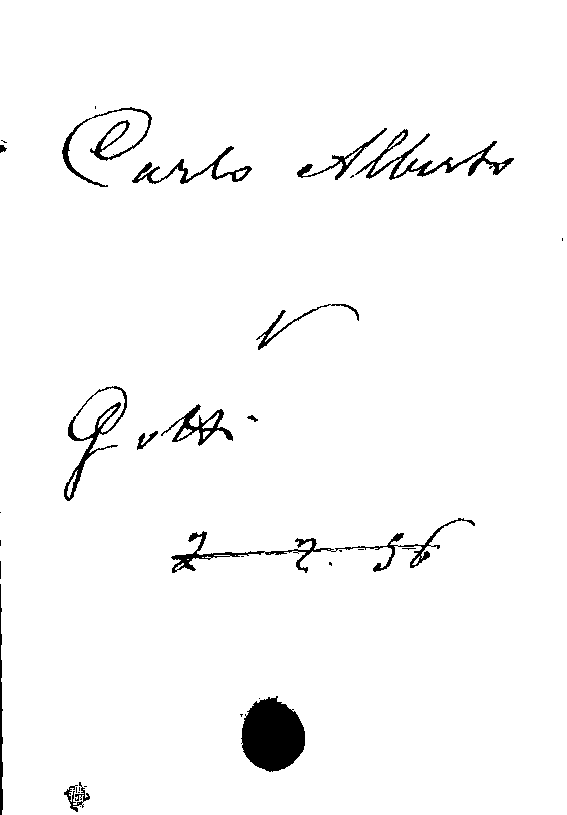 Carlo Alberto
V
Gotti
2 7. 56